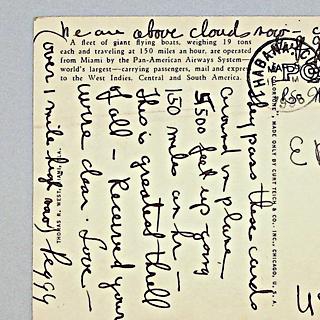 we are above clouds now
A fleet of giant flying boats, weighing 19 tons
each and traveling at 150 miles an hour, are operated
from Miami by the Pan-American Airways System—
world's largest—carrying passengers, mail and express
to the West Indies, Central and South America.
They pass these cards
around in plane—
5,500 feet up going
150 miles an hr—
This is greatest thrill
of all — Received your
were dear. Love—
(over 1 mile high now) Peggy
THOMAS R. WEST, MIAMI
MADE ONLY BY CURT TEICH & CO., INC., CHICAGO, U. S. A.
HABANA